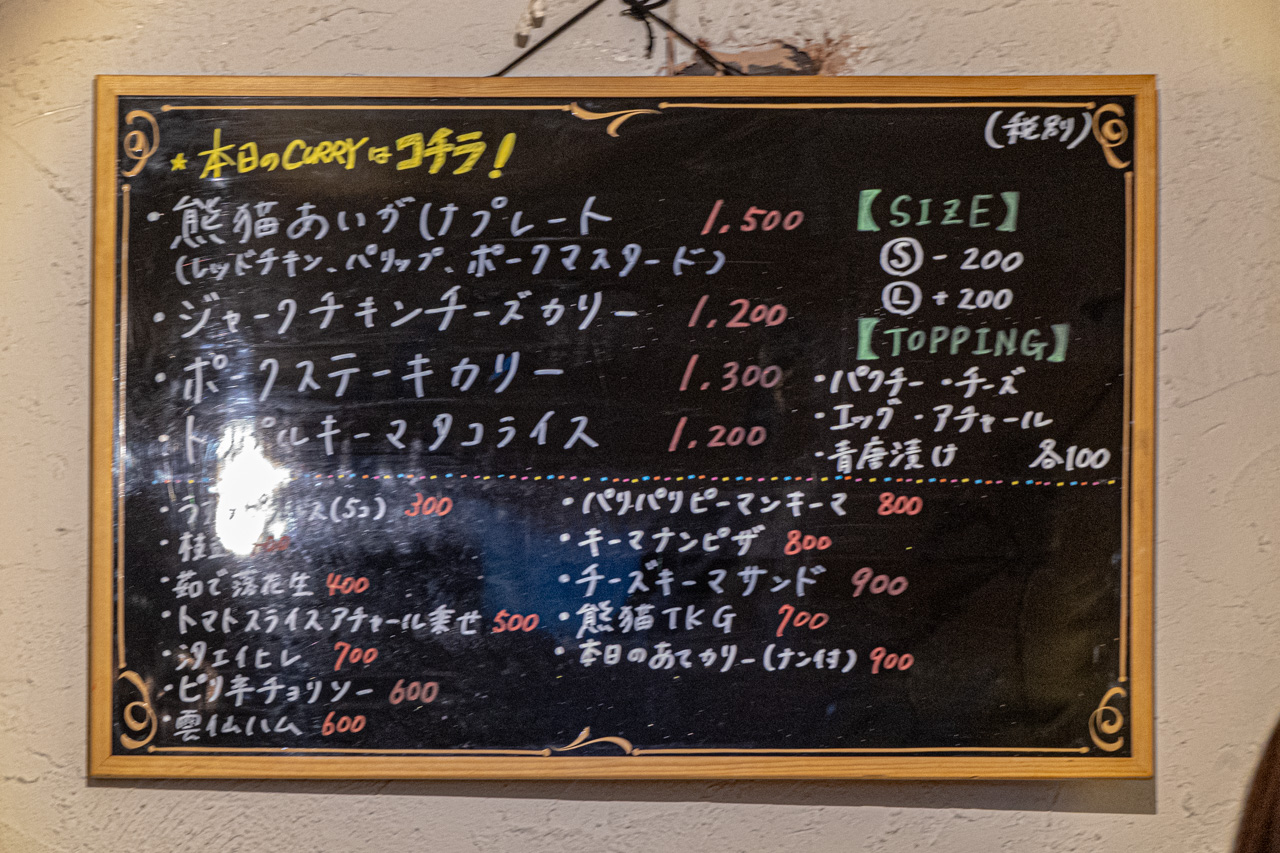 (税別)
★ 本日のCURRYはコチラ!
・熊猫あいがけプレート 1.500
(レッドチキン、パリップ、ポークマスタード)
・ジャークチキンチーズカリー 1.200
・ポークステーキカリー 1.300
・トリプルキーマタコライス 1.200
【SIZE】
Ⓢ - 200
Ⓛ + 200
【TOPPING】
・パクチー ・チーズ
・エッグ ・アチャール
・青唐漬け 各100
ス(5コ) 300
・枝豆
・茹で落花生 400
・トマトスライスアチャール乗せ 500
・エイヒレ 700
・ピリ辛チョリソー 600
・雲仙ハム 600
・パリパリピーマンキーマ 800
・キーマナンピザ 800
・チーズキーマサンド 900
・熊猫TKG 700
・本日のあてカリー(ナン付) 900